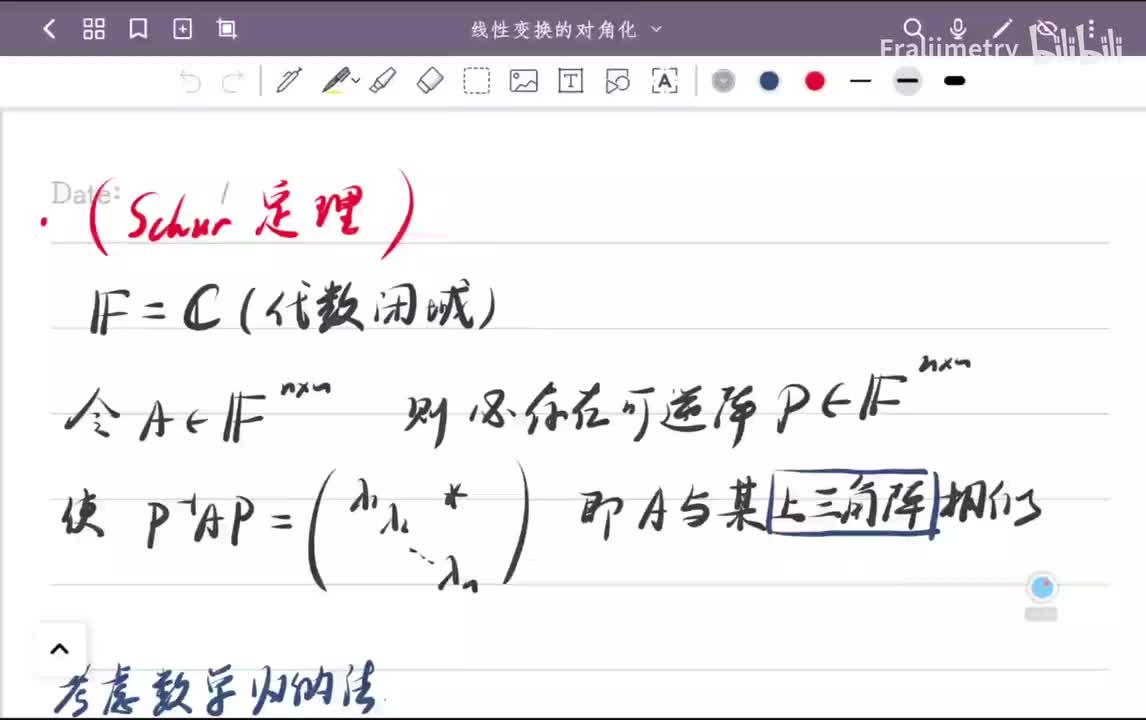 线性变换的对角化
Eraliimetry bilibili
A
Date: /
·(Schur 定理)
F = C (代数闭域)
令 A∈F^{n×n} 则必存在可逆阵 P∈F^{n×n}
使 P⁻¹AP = (λ₁ λ₂ * ⋱ λₙ) 即 A 与某上三角阵相似
考虑数学归纳法